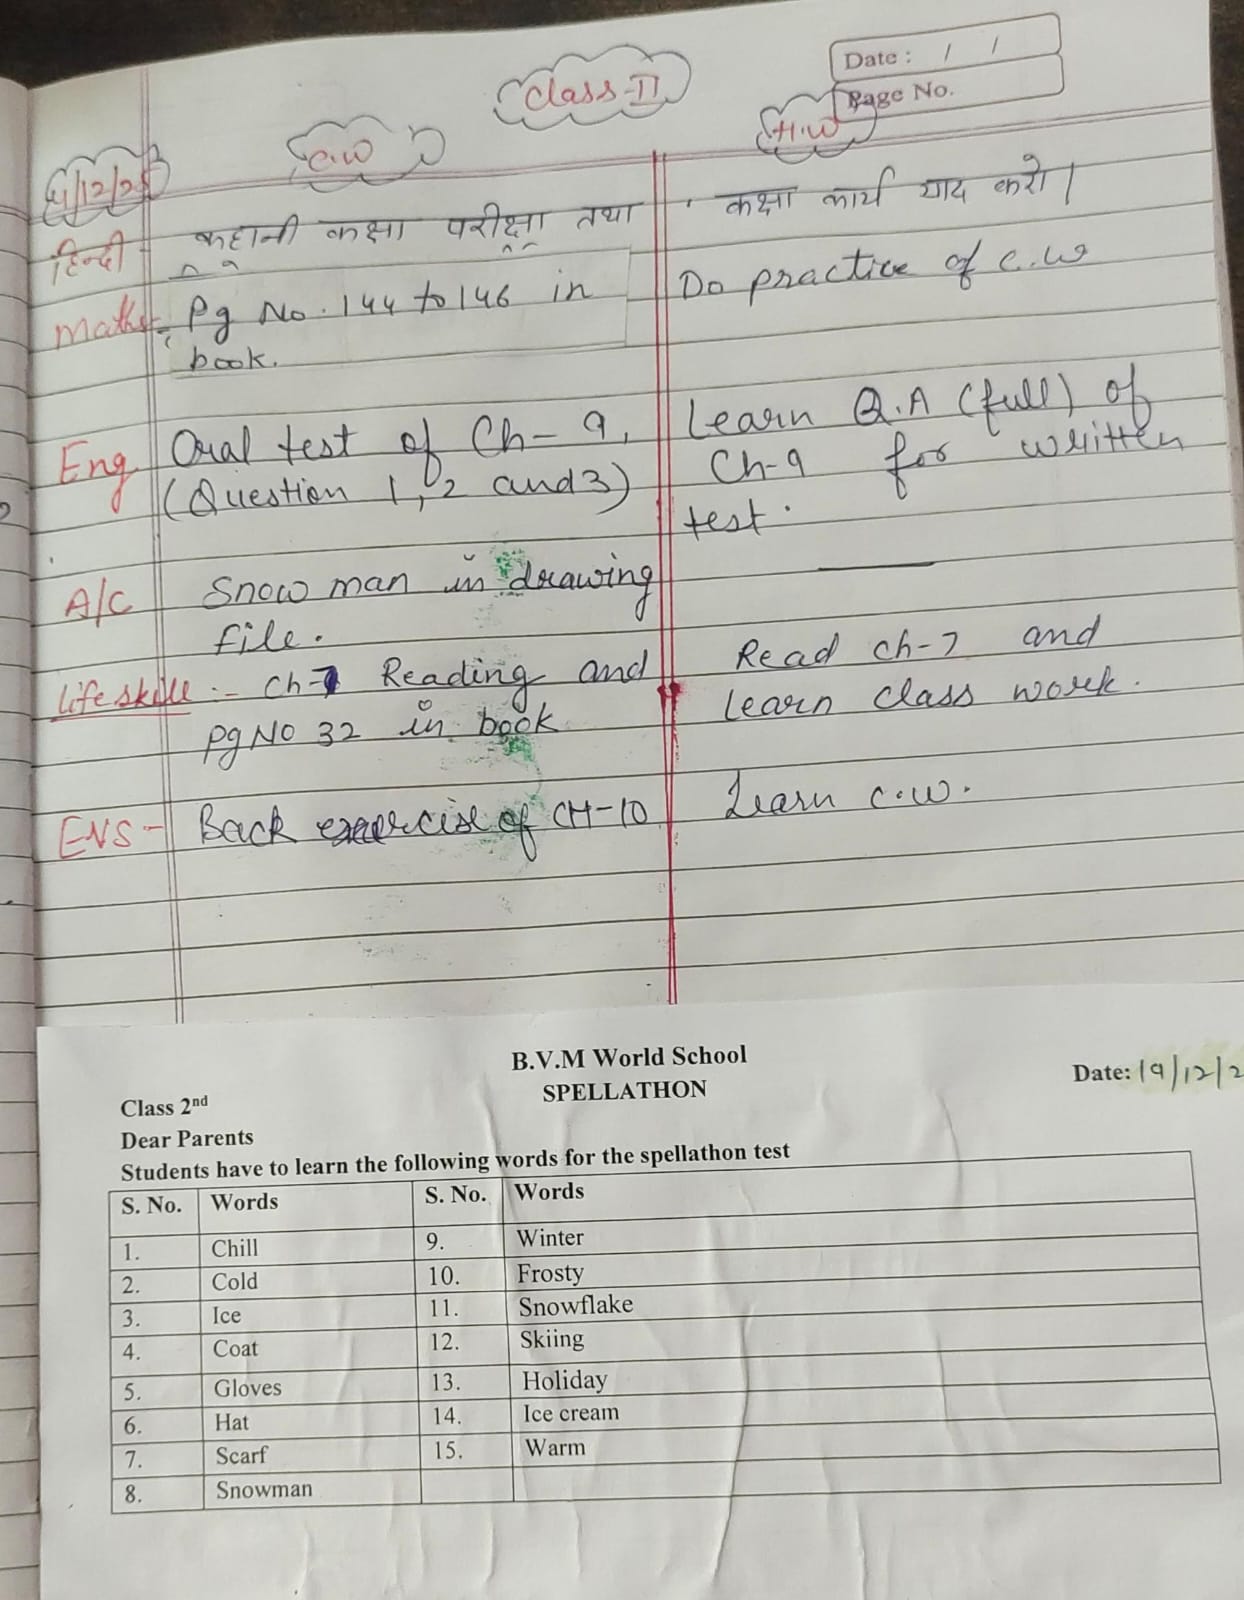 Class-II
Date : / /
Page No.
C.W
H.W
/12/25
हिन्दी कहानी कक्षा परीक्षा तथा कक्षा कार्य याद करो।
Maths- Pg No. 144 to 146 in Do practice of c.w
book.
Eng Oral test of Ch-9, Learn Q.A (full) of
(Question 1, 2 and 3) Ch-9 for written
test.
A/C Snow man in drawing
file.
Life skill :- Ch-7 Reading and Read ch-7 and
pg NO 32 in book learn class work.
ENS- Back exercise of CH-10 Learn c.w.
B.V.M World School
SPELLATHON
Date: 19/12/2
Class 2nd
Dear Parents
Students have to learn the following words for the spellathon test
S. No. Words S. No. Words
1. Chill 9. Winter
2. Cold 10. Frosty
3. Ice 11. Snowflake
4. Coat 12. Skiing
5. Gloves 13. Holiday
6. Hat 14. Ice cream
7. Scarf 15. Warm
8. Snowman